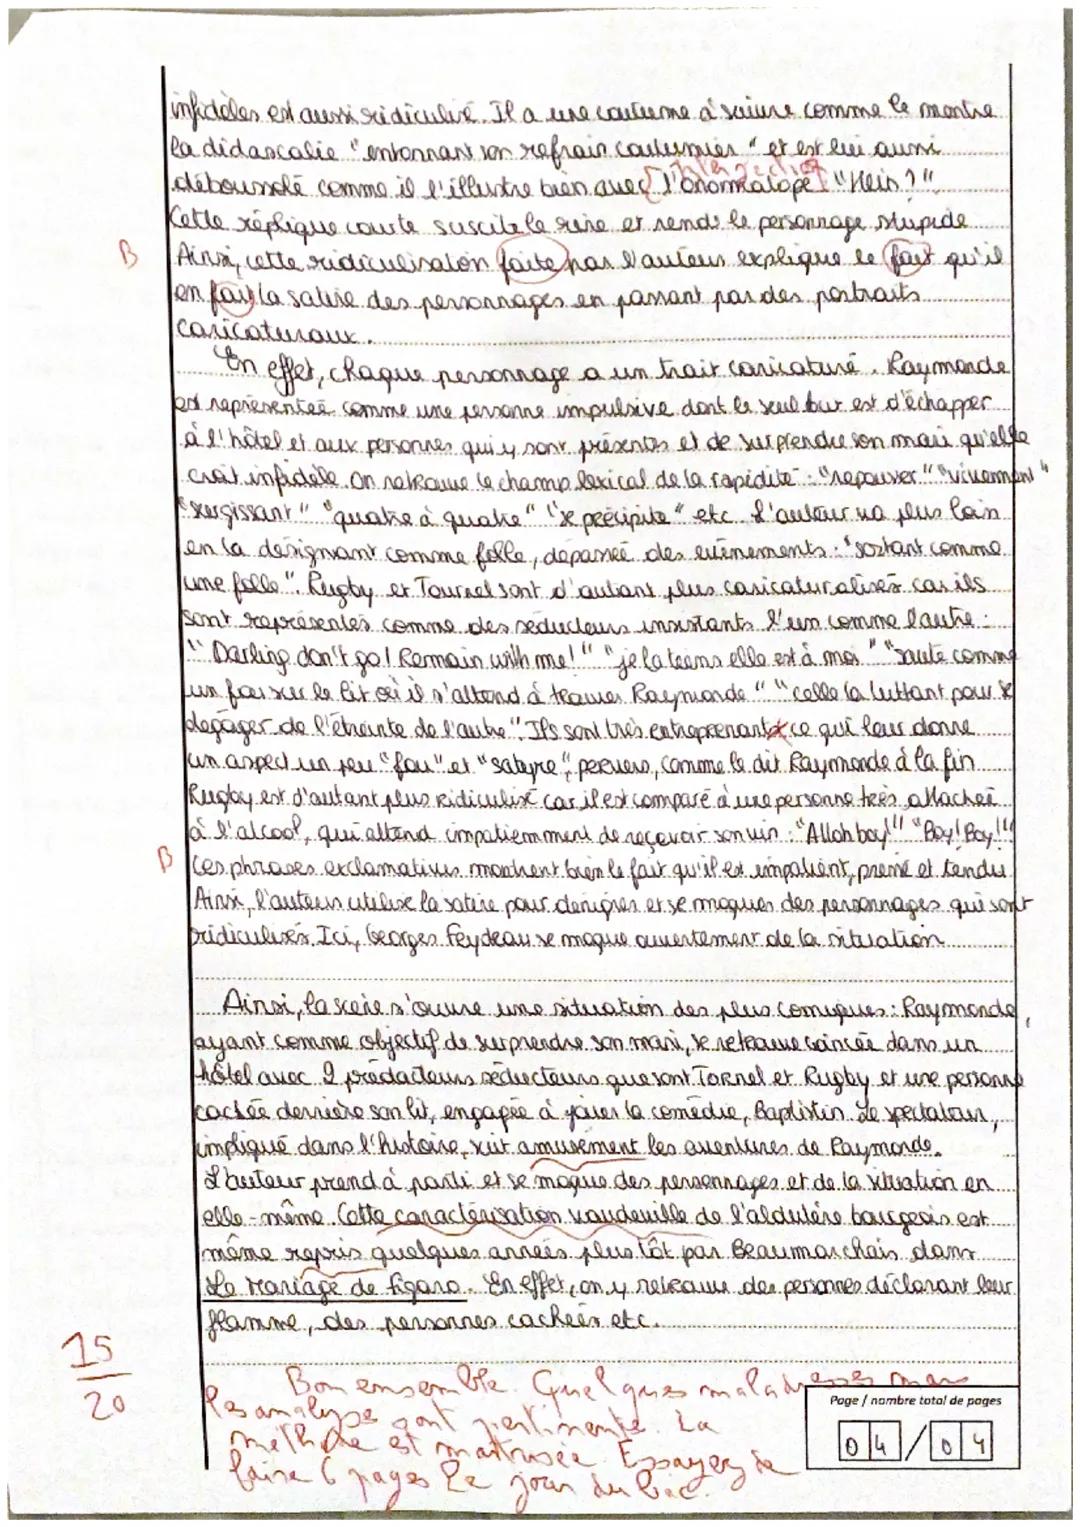 infidèles est aussi ridiculisé. Il a une coutume à suivre comme le montre
la didascalie "entonnant son refrain coutumier" et est lui aussi
interjection
déboussolé comme il l'illustre bien avec [l'onomatopé] "Hein ?"
Cette réplique courte suscite le rire et rend le personnage stupide.
B Ainsi, cette ridiculisation faite par l'auteur explique le fait qu'il
en fait la satire des personnages en passant par des portraits
caricaturaux.
En effet, chaque personnage a un trait caricaturé. Raymonde
est représentée comme une personne impulsive dont le seul but est d'échapper
à l'hôtel et aux personnes qui y sont présentes et de surprendre son mari qu'elle
croit infidèle. On retrouve le champ lexical de la rapidité : "repousser" "vivement"
"surgissant" "quatre à quatre" "se précipite" etc. L'auteur va plus loin
en la désignant comme folle, dépassée des evènements : "sortant comme
une folle". Rugby et Tournel sont d'autant plus caricaturalisés car ils
sont représentés comme des séducteurs insistants l'un comme l'autre :
"Darling don't go! Remain with me!" "je la tiens elle est à moi" "saute comme
un fou sur le lit où il s'attend à trouver Raymonde" "celle la luttant pour se
dégager de l'étreinte de l'autre". Ils sont très entreprenant ce qui leur donne
un aspect un peu "fou" et "satyre", pervers, comme le dit Raymonde à la fin
Rugby est d'autant plus ridiculisé car il est comparé à une personne très attachée
à l'alcool, qui attend impatiemment de reçevoir son vin : "Allah boy!" "Boy! Boy!"
B Ces phrases exclamatives montrent bien le fait qu'il est impatient, pressé et tendu
Ainsi, l'auteur utilise la satire pour dénigrer et se moquer des personnages qui sont
ridiculisés. Ici, Georges Feydeau se moque ouvertement de la situation
Ainsi, la scène s'ouvre une situation des plus comiques : Raymonde,
ayant comme objectif de surprendre son mari, se retrouve coincée dans un
hôtel avec 2 prédateurs séducteurs que sont Tornel et Rugby et une personne
cachée derrière son lit, engagée à jouer la comédie, Baptistin. Le spectateur,
impliqué dans l'histoire, suit amusément les aventures de Raymonde.
L'auteur prend à parti et se moque des personnages et de la situation en
elle-même. Cette caractérisation vaudeville de l'adultère bourgeois est
même repris quelques années plus tôt par Beaumarchais dans
Le Mariage de Figaro. En effet, on y retrouve des personnes déclarant leur
flamme, des personnes cachées etc.
15
20
Bon ensemble. Quelques maladresses mais
les analyses sont pertinentes. La
méthode est maitrisée. Essayez de
faire 6 pages le jour du bac.
Page / nombre total de pages
04 / 04